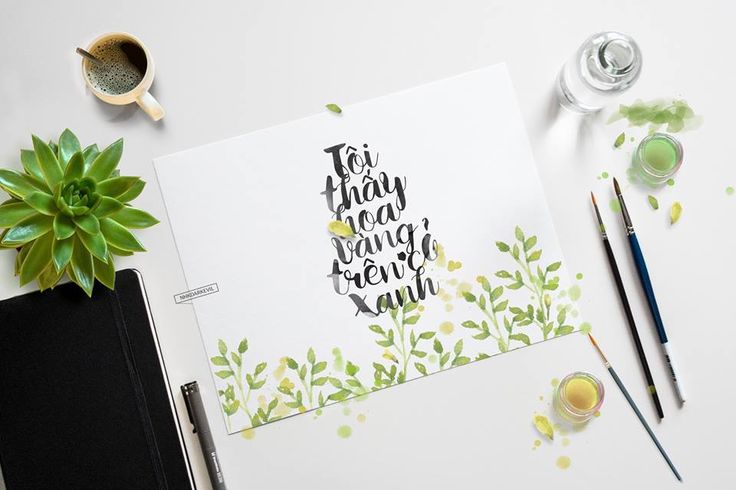 Tôi
thấy
hoa
vàng
trên cỏ
xanh
NHRDARKEVIL